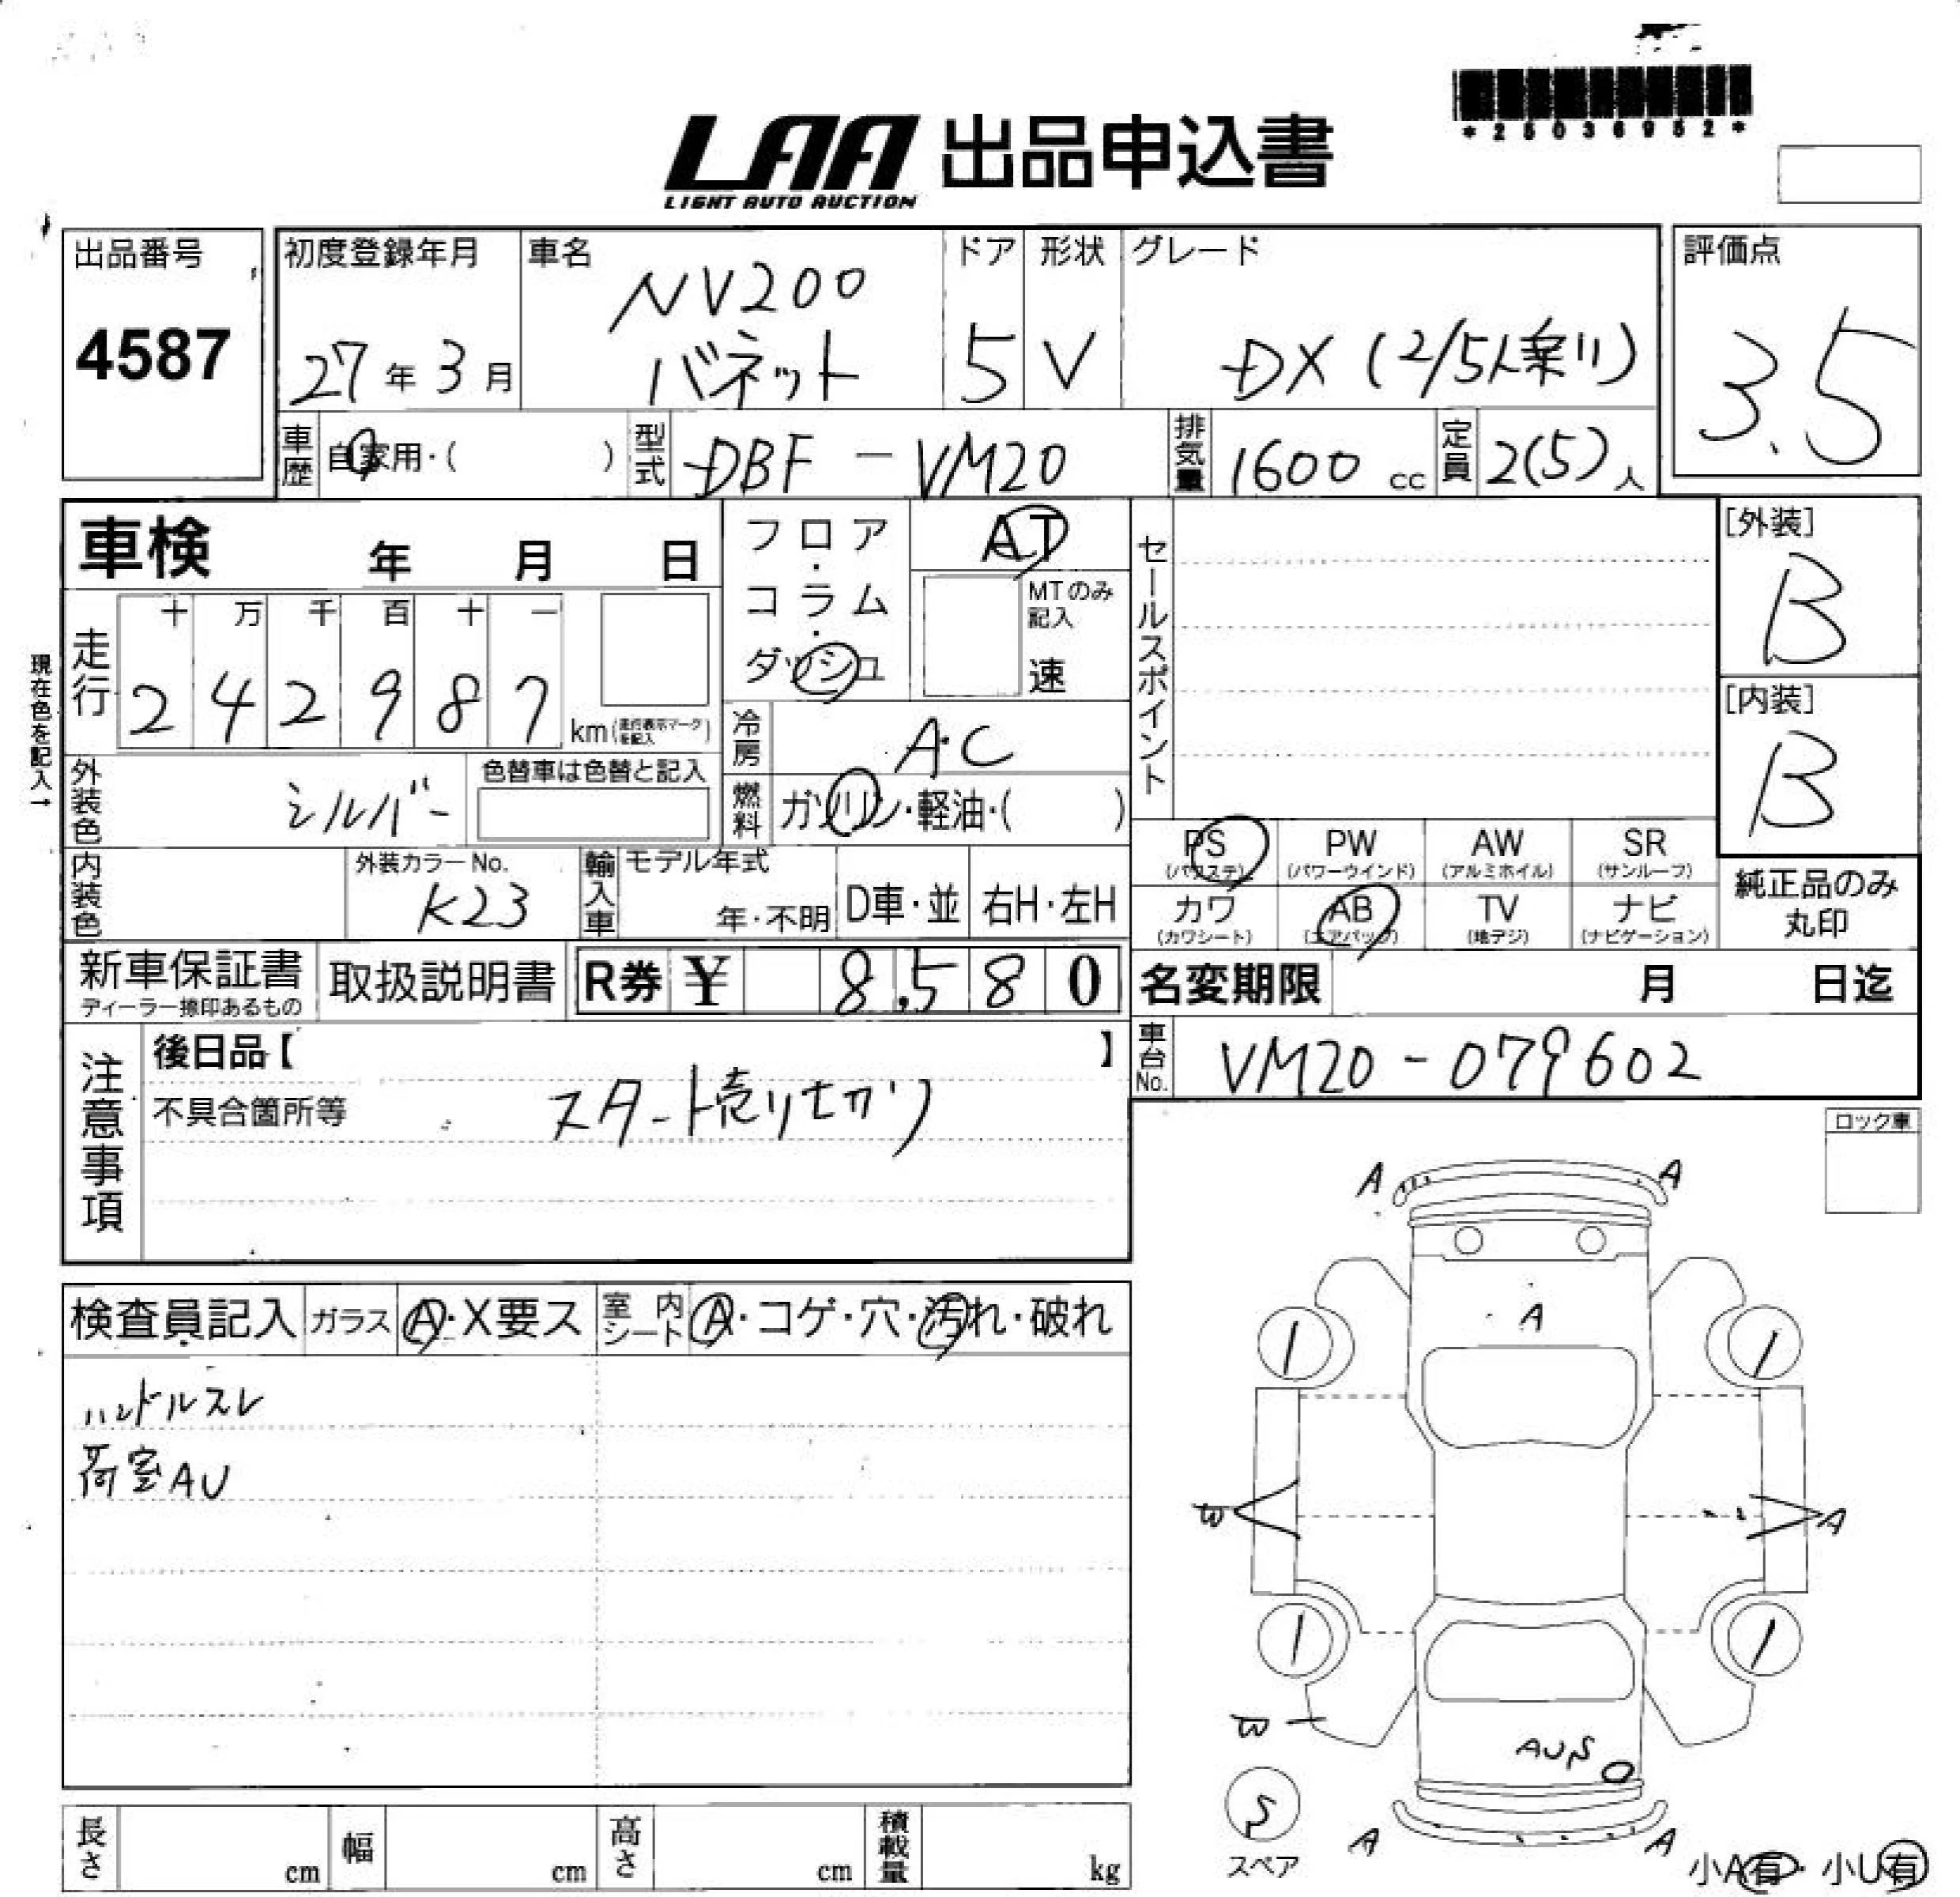 *25036952*
LAA 出品申込書
LIGHT AUTO AUCTION
出品番号
4587
初度登録年月
27年3月
車名
NV200
バネット
ドア
5
形状
V
グレード
DX (2/5人乗り)
評価点
3.5
車歴 自家用・( )
型式 DBF-VM20
排気量 1600 cc
定員 2(5)人
車検 年 月 日
フロア・コラム・ダッシュ
AT
MTのみ記入
速
セールスポイント
[外装]
B
[内装]
B
現在色を記入→
走行
十 万 千 百 十 一
2 4 2 9 8 7 km(走行表示マークを記入)
冷房 A・C
外装色 シルバー
色替車は色替と記入
燃料 ガソリン・軽油・( )
内装色
外装カラーNo.
K23
輸入車
モデル年式
年・不明
D車・並
右H・左H
PS (パワステ)
PW (パワーウインド)
AW (アルミホイル)
SR (サンルーフ)
カワ (カワシート)
AB (エアバッグ)
TV (地デジ)
ナビ (ナビゲーション)
純正品のみ
丸印
新車保証書
ディーラー捺印あるもの
取扱説明書
R券 ¥ 8,580
名変期限 月 日迄
車台No. VM20-079602
注意事項
後日品【 】
不具合箇所等
スタート売りセカリ
ロック車
検査員記入
ガラス A・X要ス
室内シート A・コゲ・穴・汚れ・破れ
ハンドルスレ
荷室AU
A A
A
A
A A
S
スペア
小A有・小U有
長さ cm
幅 cm
高さ cm
積載量 kg